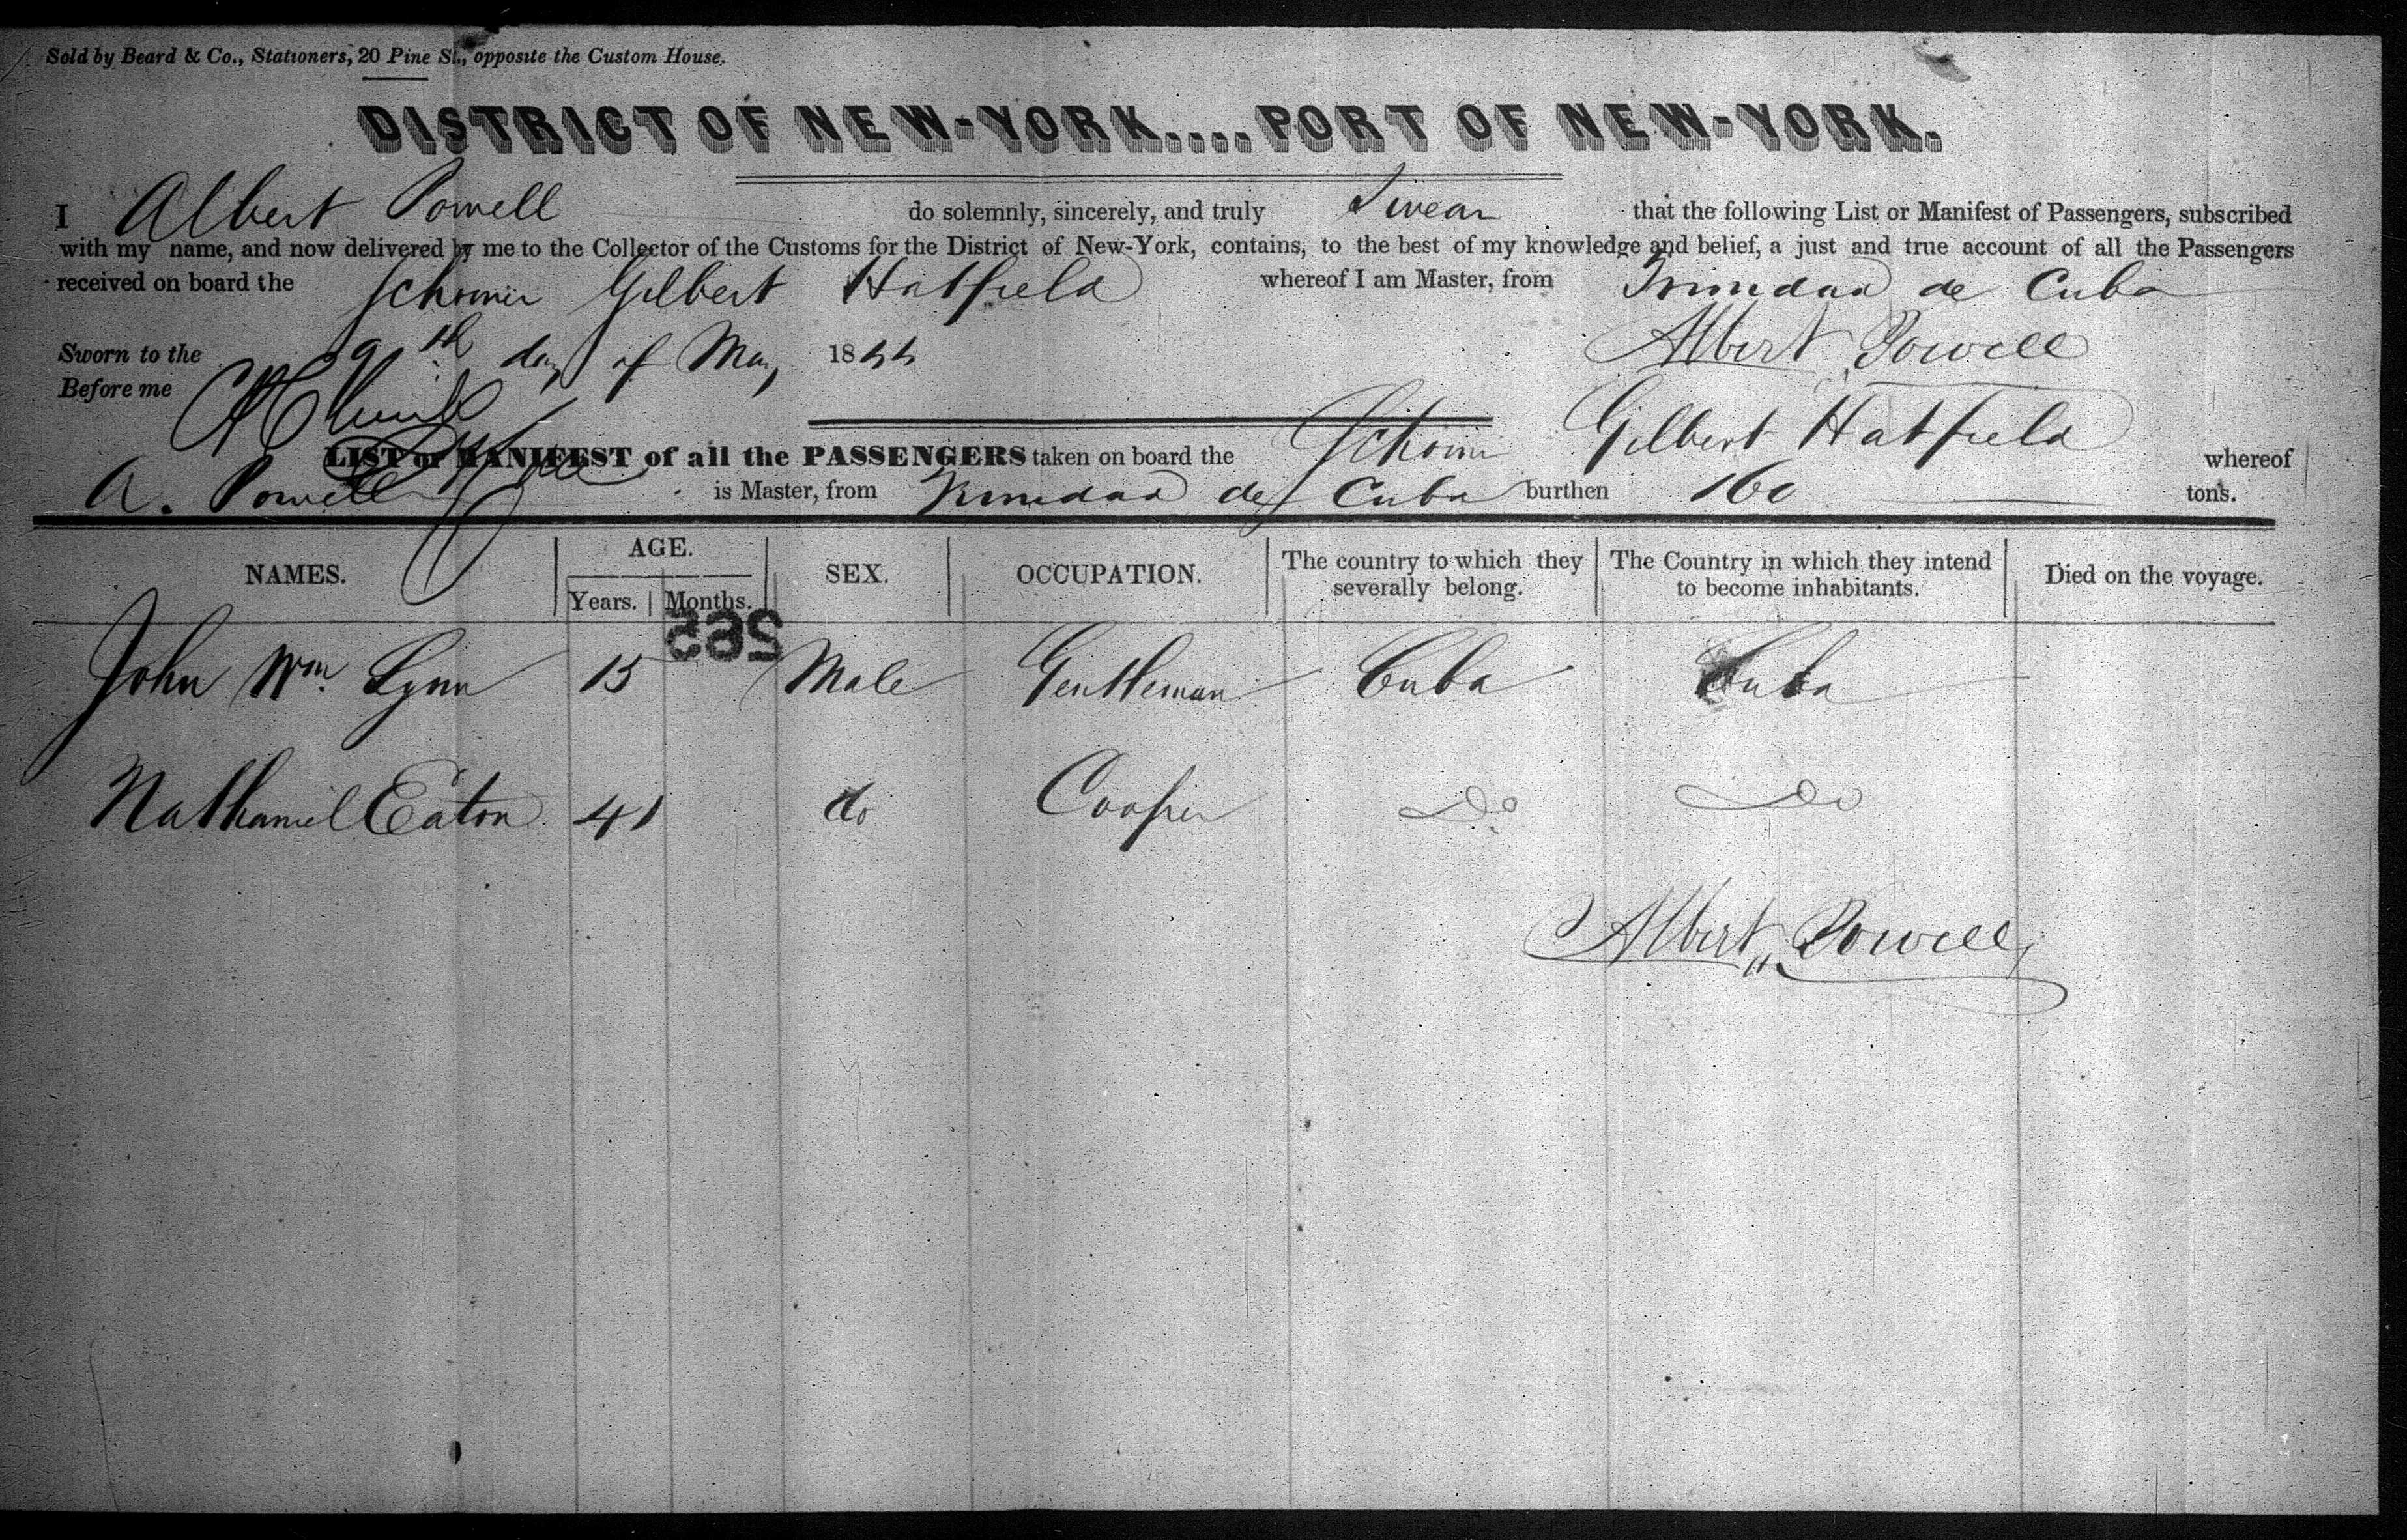 Sold by Beard & Co., Stationers, 20 Pine St., opposite the Custom House.
DISTRICT OF NEW-YORK....PORT OF NEW-YORK.
I Albert Powell do solemnly, sincerely, and truly Swear that the following List or Manifest of Passengers, subscribed
with my name, and now delivered by me to the Collector of the Customs for the District of New-York, contains, to the best of my knowledge and belief, a just and true account of all the Passengers
received on board the Schooner Gilbert Hatfield whereof I am Master, from Trinidad de Cuba
Sworn to the 9th day of May 1844 Albert Powell
Before me
LIST or MANIFEST of all the PASSENGERS taken on board the Schooner Gilbert Hatfield whereof
A. Powell is Master, from Trinidad de Cuba burthen 160 tons.
NAMES. AGE. SEX. OCCUPATION. The country to which they severally belong. The Country in which they intend to become inhabitants. Died on the voyage.
Years. Months.
265
John Wm. Lynn 15 Male Gentleman Cuba Cuba
Nathaniel Eaton 41 do Cooper Do Do
Albert Powell